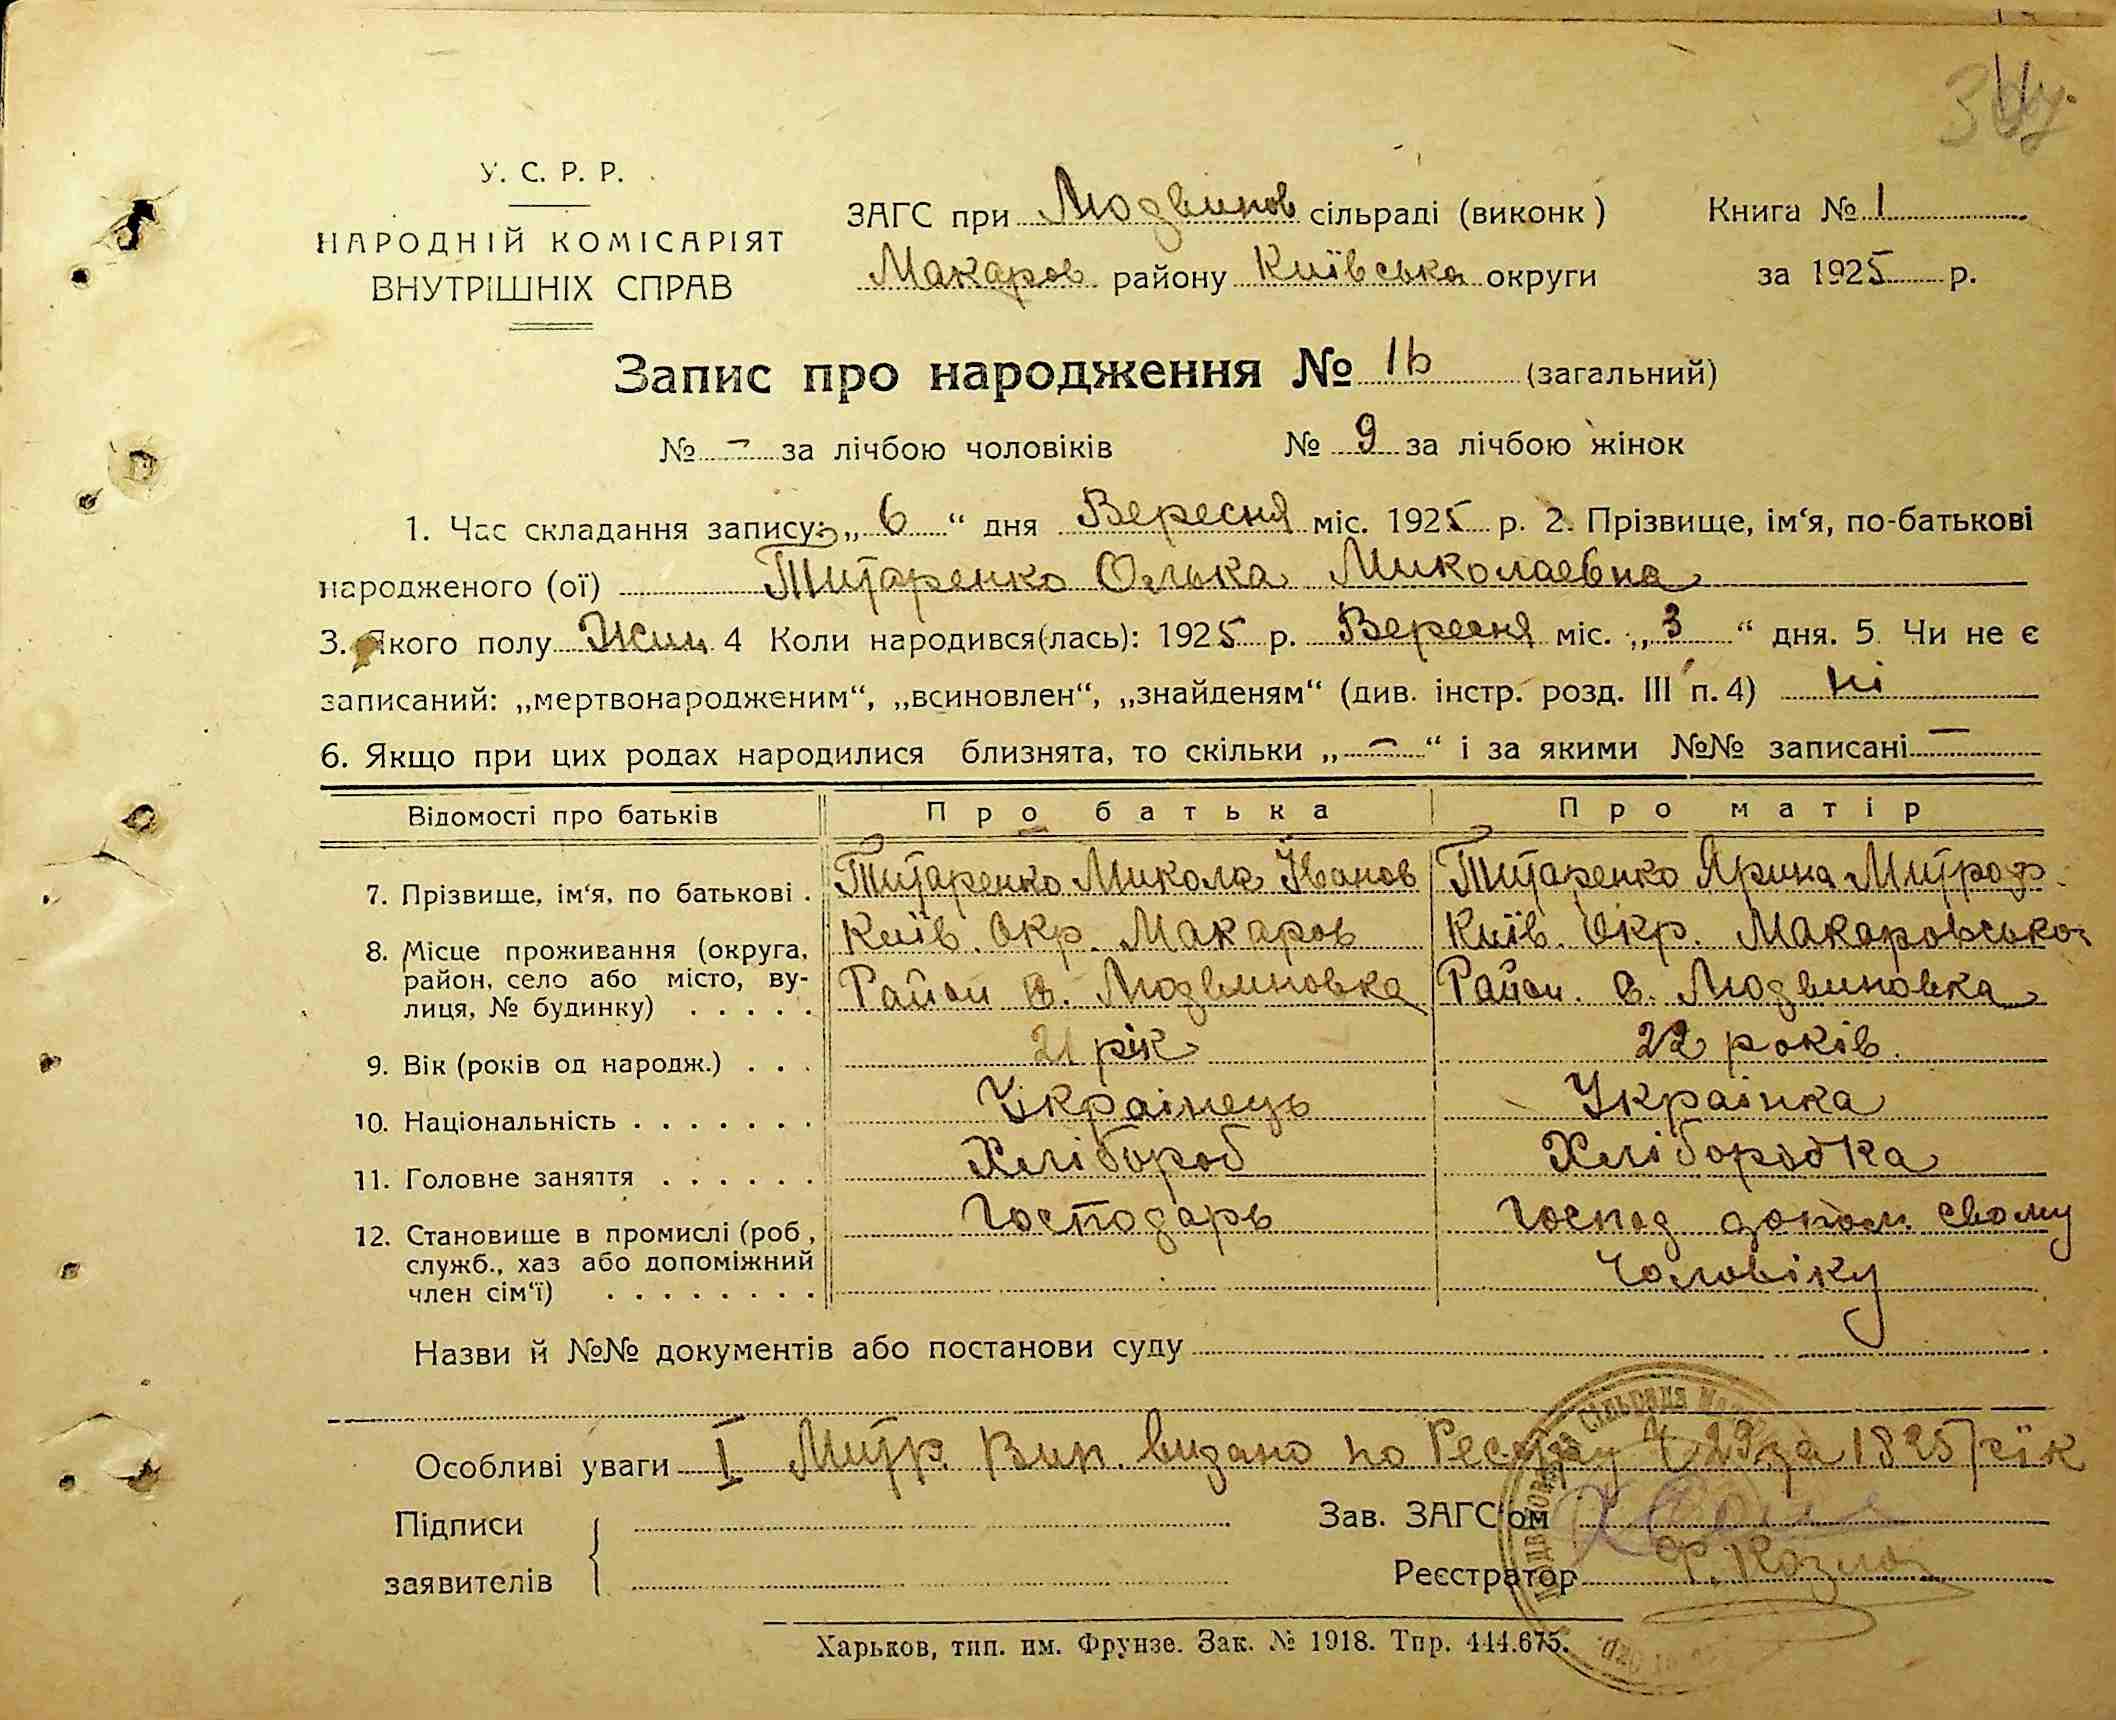 У. С. Р. Р.
НАРОДНІЙ КОМІСАРІЯТ
ВНУТРІШНІХ СПРАВ
ЗАГС при Людвинов сільраді (виконк)
Макаров району Київська округи
Книга № 1
за 1925 р.
Запис про народження № 16 (загальний)
№ – за лічбою чоловіків № 9 за лічбою жінок
1. Час складання запису: „6“ дня Вересня міс. 1925 р. 2. Прізвище, ім‘я, по-батькові
народженого (ої) Титаренко Олька Миколаевна
3. Якого полу Жин 4 Коли народився(лась): 1925 р. Вересня міс. „3“ дня. 5. Чи не є
записаний: „мертвонародженим“, „всиновлен“, „знайденям“ (див. інстр. розд. III п. 4) ні
6. Якщо при цих родах народилися близнята, то скільки „–“ і за якими №№ записані –
Відомості про батьків Про батька Про матір
7. Прізвище, ім‘я, по батькові . Титаренко Микола Іванов Титаренко Ярина Митроф.
8. Місце проживання (округа, Київ. Окр. Макаров Київ. Окр. Макаровсько
район, село або місто, ву- Район с. Людвиновка Район. с. Людвиновка
лиця, № будинку) . . . . .
9. Вік (років од народж.) . . . 21 рік 22 років.
10. Національність . . . . . . . Украінець Украінка
11. Головне заняття . . . . . . Хлібороб Хлібородка
12. Становище в промислі (роб, Господарь Господ допом. свому
служб., хаз або допоміжний чоловіку
член сім‘ї) . . . . . . . .
Назви й №№ документів або постанови суду
Особливі уваги I Митр. Вип. видано по Реєстру № 29 за 1825 рік
Підписи
заявителів
Зав. ЗАГС‘ом
Реєстратор Ф. Козло
Харьков, тип. им. Фрунзе. Зак. № 1918. Тир. 444.675.